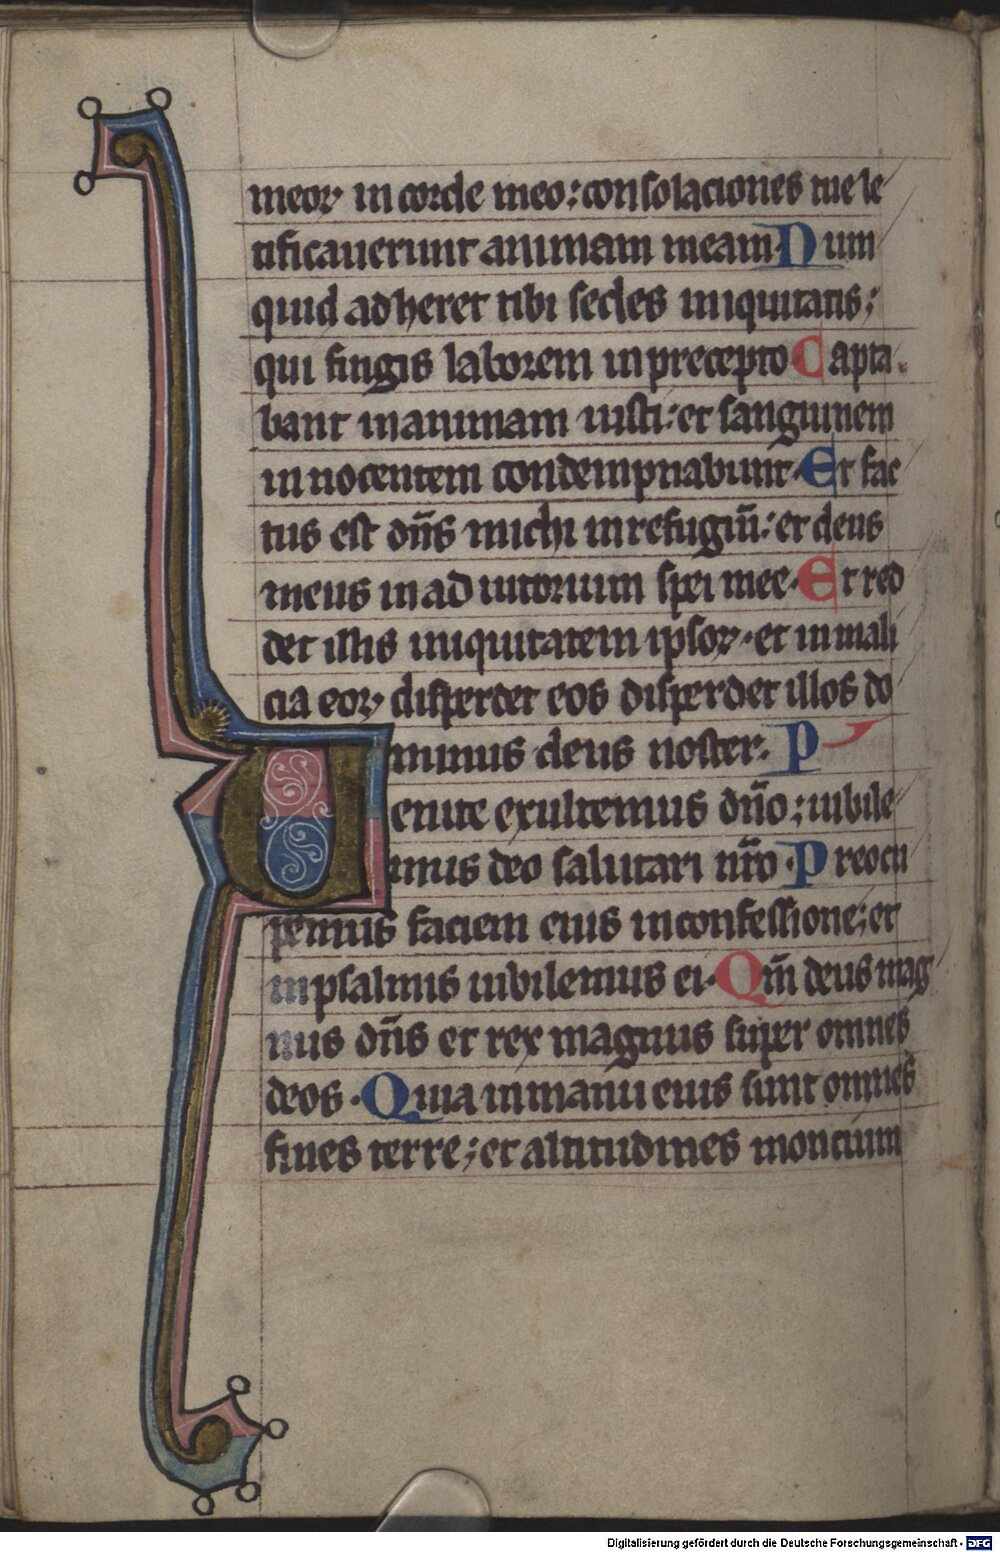 meoꝝ in corde meo: consolaciones tue le
tificauerunt animam meam. Num
quid adheret tibi sedes iniquitatis:
qui fingis laborem in precepto Capta
bant in animam iusti: et sanguinem
innocentem condempnabunt. Et fac
tus est dn̄s michi in refugiū: et deus
meus in adiutorium spei mee. Et red
det illis iniquitatem ipsoꝝ. et in mali
cia eoꝝ disperdet eos disperdet illos do
minus deus noster. P
Uenite exultemus dn̄o: iubile
mus deo salutari nr̄o. Preocu
pemus faciem eius in confessione: et
in psalmis iubilemus ei. Qm̄ deus mag
nus dn̄s et rex magnus super omnes
deos. Quia in manu eius sunt omnes
fines terre: et altitudines moncium
Digitalisierung gefördert durch die Deutsche Forschungsgemeinschaft - DFG